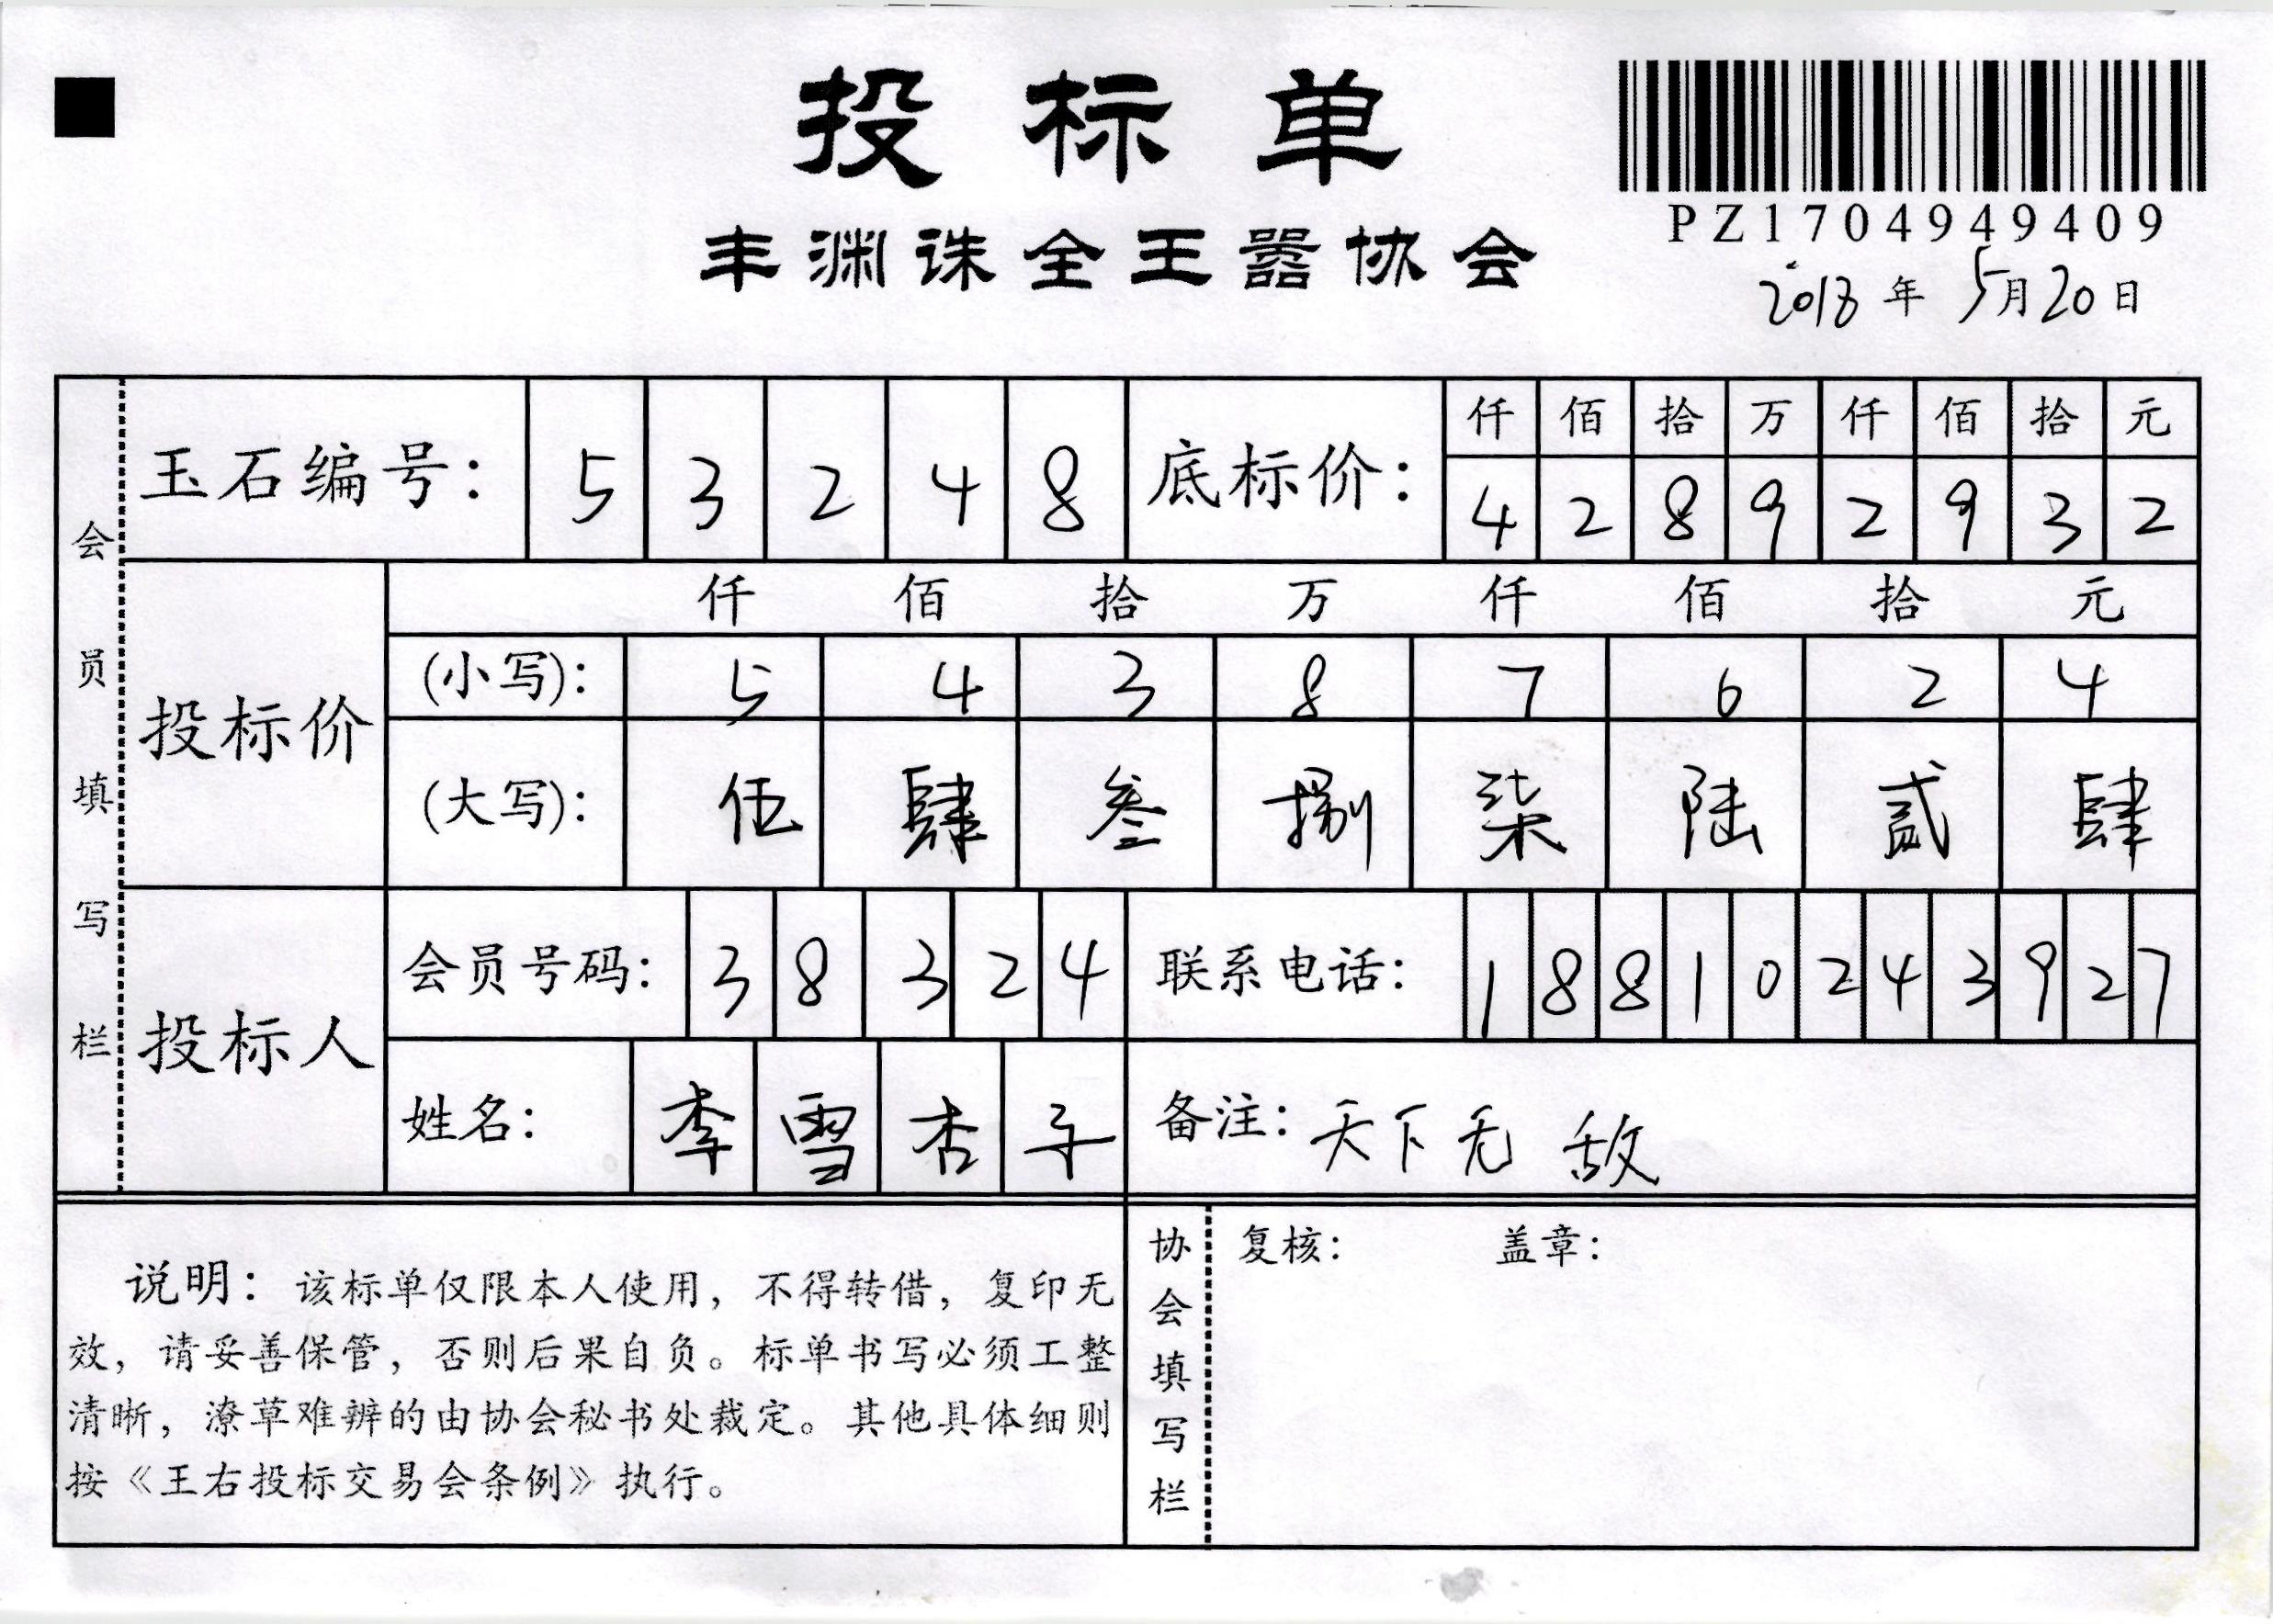 投标单
丰渊诛全王嚣协会
PZ1704949409
2018年5月20日
会员填写栏
玉石编号: 5 3 2 4 8
底标价: 仟 佰 拾 万 仟 佰 拾 元
4 2 8 9 2 9 3 2
投标价
仟 佰 拾 万 仟 佰 拾 元
(小写): 5 4 3 8 7 6 2 4
(大写): 伍 肆 叁 捌 柒 陆 贰 肆
投标人
会员号码: 3 8 3 2 4
联系电话: 1 8 8 1 0 2 4 3 9 2 7
姓名: 李 雪 杏 子
备注: 天下无敌
说明: 该标单仅限本人使用, 不得转借, 复印无
效, 请妥善保管, 否则后果自负。标单书写必须工整
清晰, 潦草难辨的由协会秘书处裁定。其他具体细则
按《王右投标交易会条例》执行。
协会填写栏
复核: 盖章: